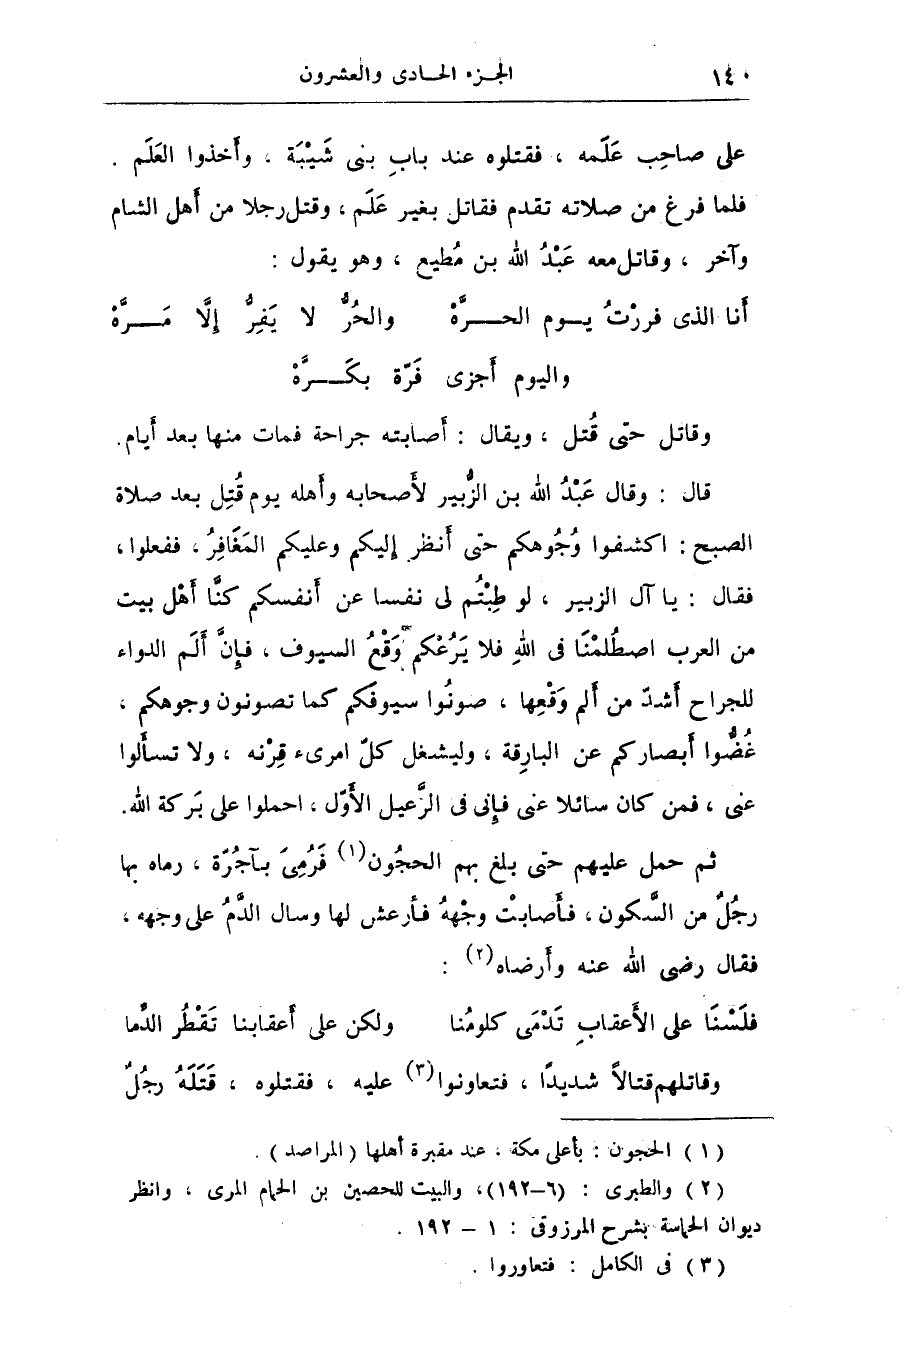 ١٤٠ الجزء الحادى والعشرون
على صاحِب عَلَمه ، فقتلوه عند بابِ بنى شَيْبَة ، وأَخذوا العَلَم .
فلما فرغ من صلاته تقدم فقاتل بغير عَلَم ، وقتل رجلا من أَهل الشام
وآخر ، وقاتل معه عَبْدُ الله بن مُطيع ، وهو يقول :
أَنا الذى فررْتُ يـوم الحـرَّهْ والحُرُّ لا يَفِرُّ إِلَّا مَـرَّهْ
واليوم أَجزى فَرّة بكَـرَّهْ
وقاتل حتَّى قُتل ، ويقال : أَصابته جراحة فمات منها بعد أَيام.
قال : وقال عَبْدُ الله بن الزُّبير لأَصحابه وأَهله يوم قُتِل بعد صلاة
الصبح : اكشفوا وُجُوهكم حتى أَنظر إِليكم وعليكم المَغَافِرُ ، ففعلوا ،
فقال : يا آل الزبير ، لو طِبْتُم لى نفسا عن أَنفسكم كنَّا أَهْل بيت
من العرب اصطُلمْنَا فى اللهِ فلا يَرُعْكم وَقْعُ السيوف ، فإِنَّ أَلَم الدواء
للجراح أَشدّ من أَلم وَقْعِها ، صونُوا سيوفكم كما تصونون وجوهكم ،
غُضُّوا أَبصاركم عن البارقة ، وليشغل كلّ امرىء قِرْنه ، ولا تسأَلوا
عنى ، فمن كان سائلا عنى فإِنى فى الرَّعيل الأَوّل ، احملوا على بَركة الله.
ثم حمل عليهم حتى بلغ بهم الحجُون(١) فَرُمِىَ بآجُرّة ، رماه بها
رجُلٌ من السَّكون ، فأَصابتْ وجْههُ فأُرعش لها وسال الدَّمُ على وجهه ،
فقال رضى الله عنه وأَرضاه(٢) :
فلَسْنَا على الأَعقابِ تَدْمَى كلومُنا ولكن على أَعقابنا تَقْطُر الدِّما
وقاتلهم قتالاً شديدًا ، فتعاونوا(٣) عليه ، فقتلوه ، قَتَلَهُ رجُلٌ
(١) الحجون : بأعلى مكة ، عند مقبرة أهلها ( المراصد ) .
(٢) والطبرى : (٦-١٩٢)، والبيت للحصين بن الحمام المرى ، وانظر
ديوان الحماسة بشرح المرزوقى : ١ - ١٩٢ .
(٣) فى الكامل : فتعاوروا .